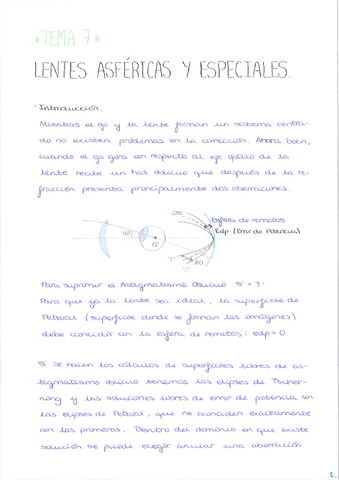 * TEMA 7 *
LENTES ASFÉRICAS Y ESPECIALES.
* Introducción.
Mientras el ojo y la lente forman un sistema centra-
do no existen problemas en la corrección. Ahora bien,
cuando el ojo gira con respecto al eje óptico de la
lente recibe un haz oblicuo que después de la re-
fracción presenta principalmente dos aberraciones.
Esfera de remotos
Edp (Error de Potencia)
W'
G'
T'
AO
Para suprimir el Astigmatismo Oblicuo S' = T'
Para que ya la lente sea ideal, la superficie de
Petzval (superficie donde se forman las imágenes)
debe coincidir con la esfera de remotos: edp = 0.
Si se hacen los cálculos de superficies libres de as-
tigmatismo oblicuo tenemos las elipses de Tscher-
ning y las soluciones libres de error de potencia son
las elipses de Petzval, que no coinciden exactamente
con las primeras. Dentro del dominio en que existe
solución se puede elegir anular una aberración
1.